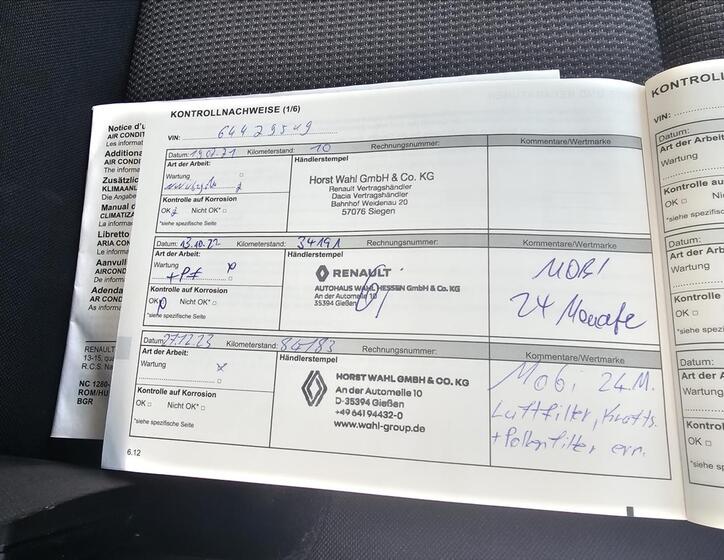 KONTROLLNACHWEISE (1/6)
VIN: 64429549
Datum: 19.07.21 Kilometerstand: 10 Rechnungsnummer:
Kommentare/Wertmarke
Art der Arbeit:
Wartung
Kontrolle auf Korrosion
OK Nicht OK*
*siehe spezifische Seite
Händlerstempel
Horst Wahl GmbH & Co. KG
Renault Vertragshändler
Dacia Vertragshändler
Bahnhof Weidenau 20
57076 Siegen
Datum: 13.10.22 Kilometerstand: 34191 Rechnungsnummer:
Kommentare/Wertmarke
Art der Arbeit:
Wartung
Kontrolle auf Korrosion
OK Nicht OK*
*siehe spezifische Seite
Händlerstempel
RENAULT
AUTOHAUS WAHL HESSEN GmbH & Co. KG
An der Automeile 10
35394 Gießen
MOBI
24 Monate
Datum: Kilometerstand: Rechnungsnummer:
Kommentare/Wertmarke
Art der Arbeit:
Wartung
Kontrolle auf Korrosion
OK Nicht OK*
*siehe spezifische Seite
Händlerstempel
HORST WAHL GMBH & CO. KG
An der Automeile 10
D-35394 Gießen
+49 641 94432-0
www.wahl-group.de
Mobi 24 M.
Luftfilter, Krafts.
+ Pollenfilter ern.
6.12
Notice d'u
AIR CONDIT
Les informat
Additiona
AIR CONDI
The informa
Zusätzlic
KLIMAANL
Die Angabe
Manual d
CLIMATIZA
La informac
Libretto
ARIA CON
Le informa
Aanvull
AIRCOND
De in dez
Adenda
AR COND
As informa
RENAULT
13-15, qua
R.C.S. Na
NC 1280-
ROM/HU
BGR
KONTROLL
VIN:
Datum:
Art der A
Wartung
Kontrolle
OK
*siehe spezifi
Datum:
Art der A
Wartung
Kontrolle
OK
*siehe spez
Datum:
Art der A
Wartung
Kontrol
OK
*siehe sp